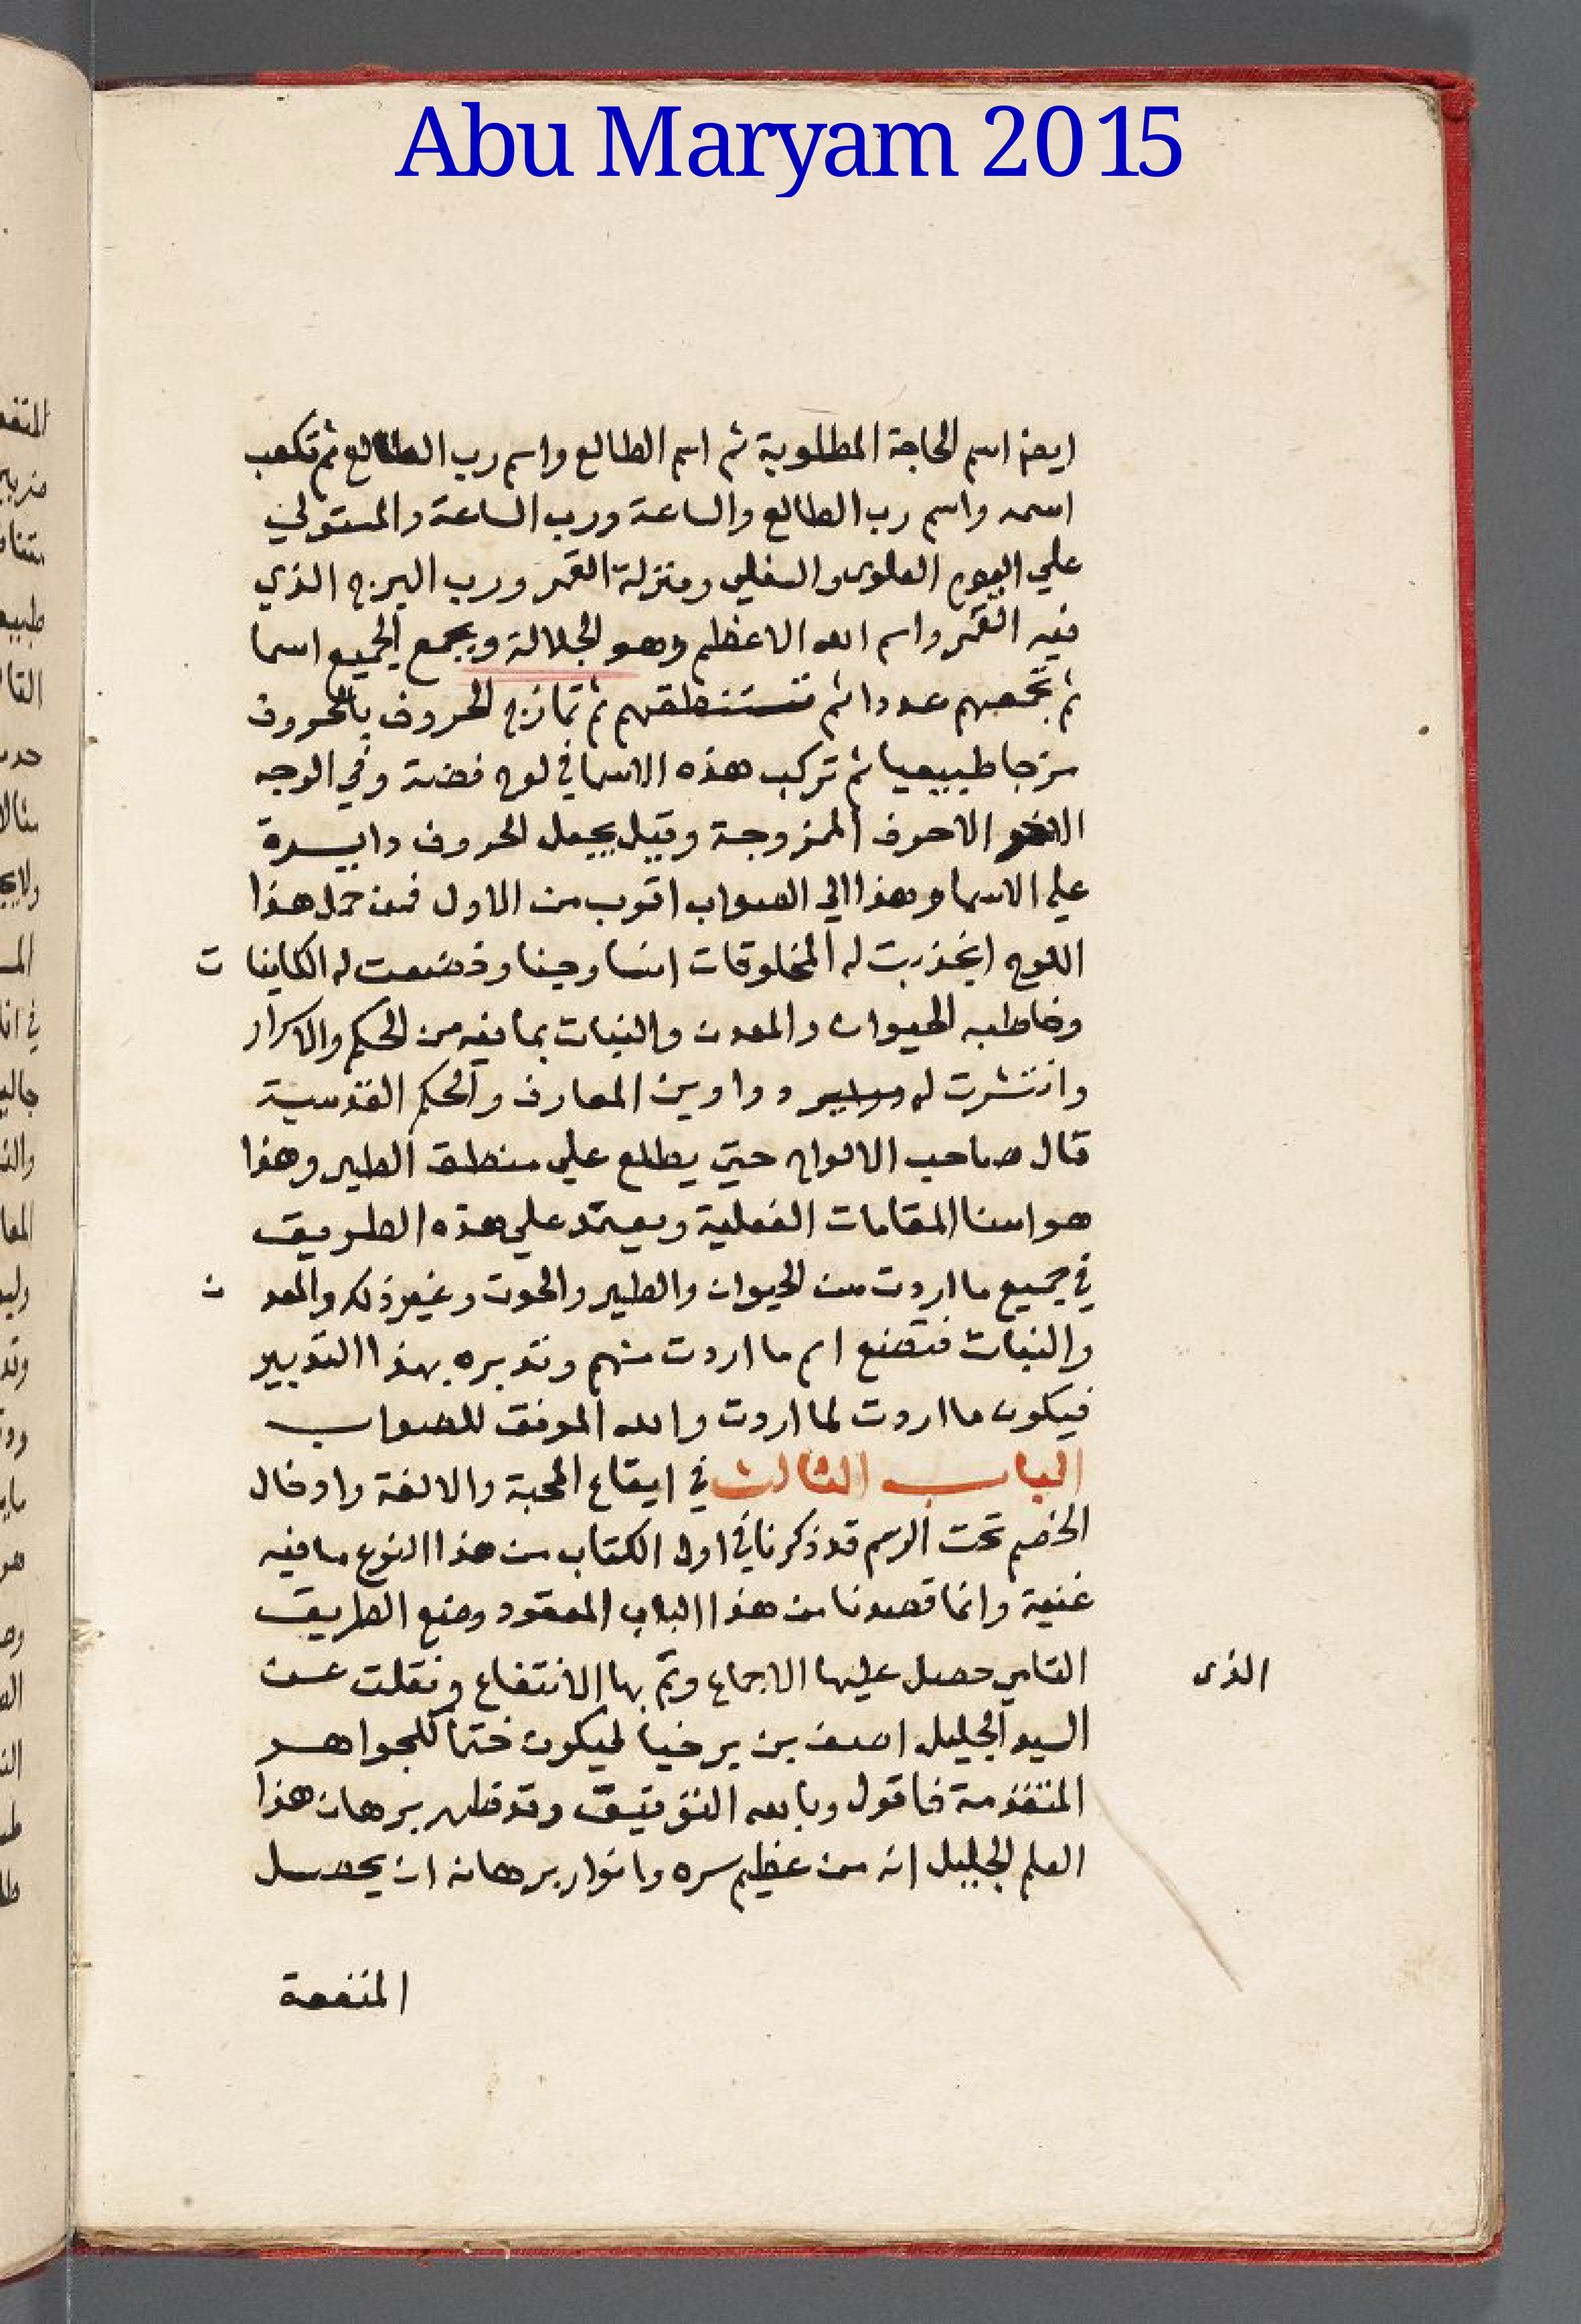 Abu Maryam 2015
ايضا اسم الحاجة المطلوبة ثم اسم الطالع واسم رب الطالع ثم تكعب
اسمه واسم رب الطالع والساعة ورب الساعة والمستولي
علي اليوم العلوي والسفلي ومنزلة القمر ورب البرج الذي
فيه القمر واسم الله الاعظم وهو الجلالة ويجمع الجميع اسما
ثم تجمعهم عددا ثم تستنطقهم ثم تمازج الحروف بالحروف
مزجا طبيعيا ثم تركب هذه الاسما في لوح فضة وفي الوجه
الاخر الاحرف الممزوجة وقيل يجعل الحروف دايرة
علي الاسما وهذا الي الصواب اقرب من الاول فمن حمل هذا
اللوح انجذبت له المخلوقات انسا وجنا وخضعت له الكاينات
وخاطبه الحيوان والمعدن والنبات بما فيه من الحكم والاسرار
وانتشرت له دواوين المعارف والحكم القدسية
قال صاحب الالواح حتي يطلع علي منطق الطير وهذا
هو اسنا المقامات الفعلية ويعتمد علي هذه الطريق
في جميع ما اردت من الحيوان والطير والحوت وغير ذلك والمعدن
والنبات فتصنع اسم ما اردت منهم وتدبره بهذا التدبير
فيكون ما اردت لما اردت والله الموفق للصواب
الباب الثالث في ايقاع المحبة والالفة وادخال
الخصم تحت الرسم قد ذكرنا في اول الكتاب من هذا النوع ما فيه
غنية وانما قصدنا من هذا الباب المعقود وضع الطريق
الذي
حصل عليها الاجماع وتم بها الانتفاع ونقلت عن
السيد الجليل اصف بن برخيا ليكون ختما للجواهر
المتقدمة فاقول وبالله التوفيق وقد برهان هذا
العلم الجليل انه من عظيم سره وانوار برهانه ان يحصل
المنفعة